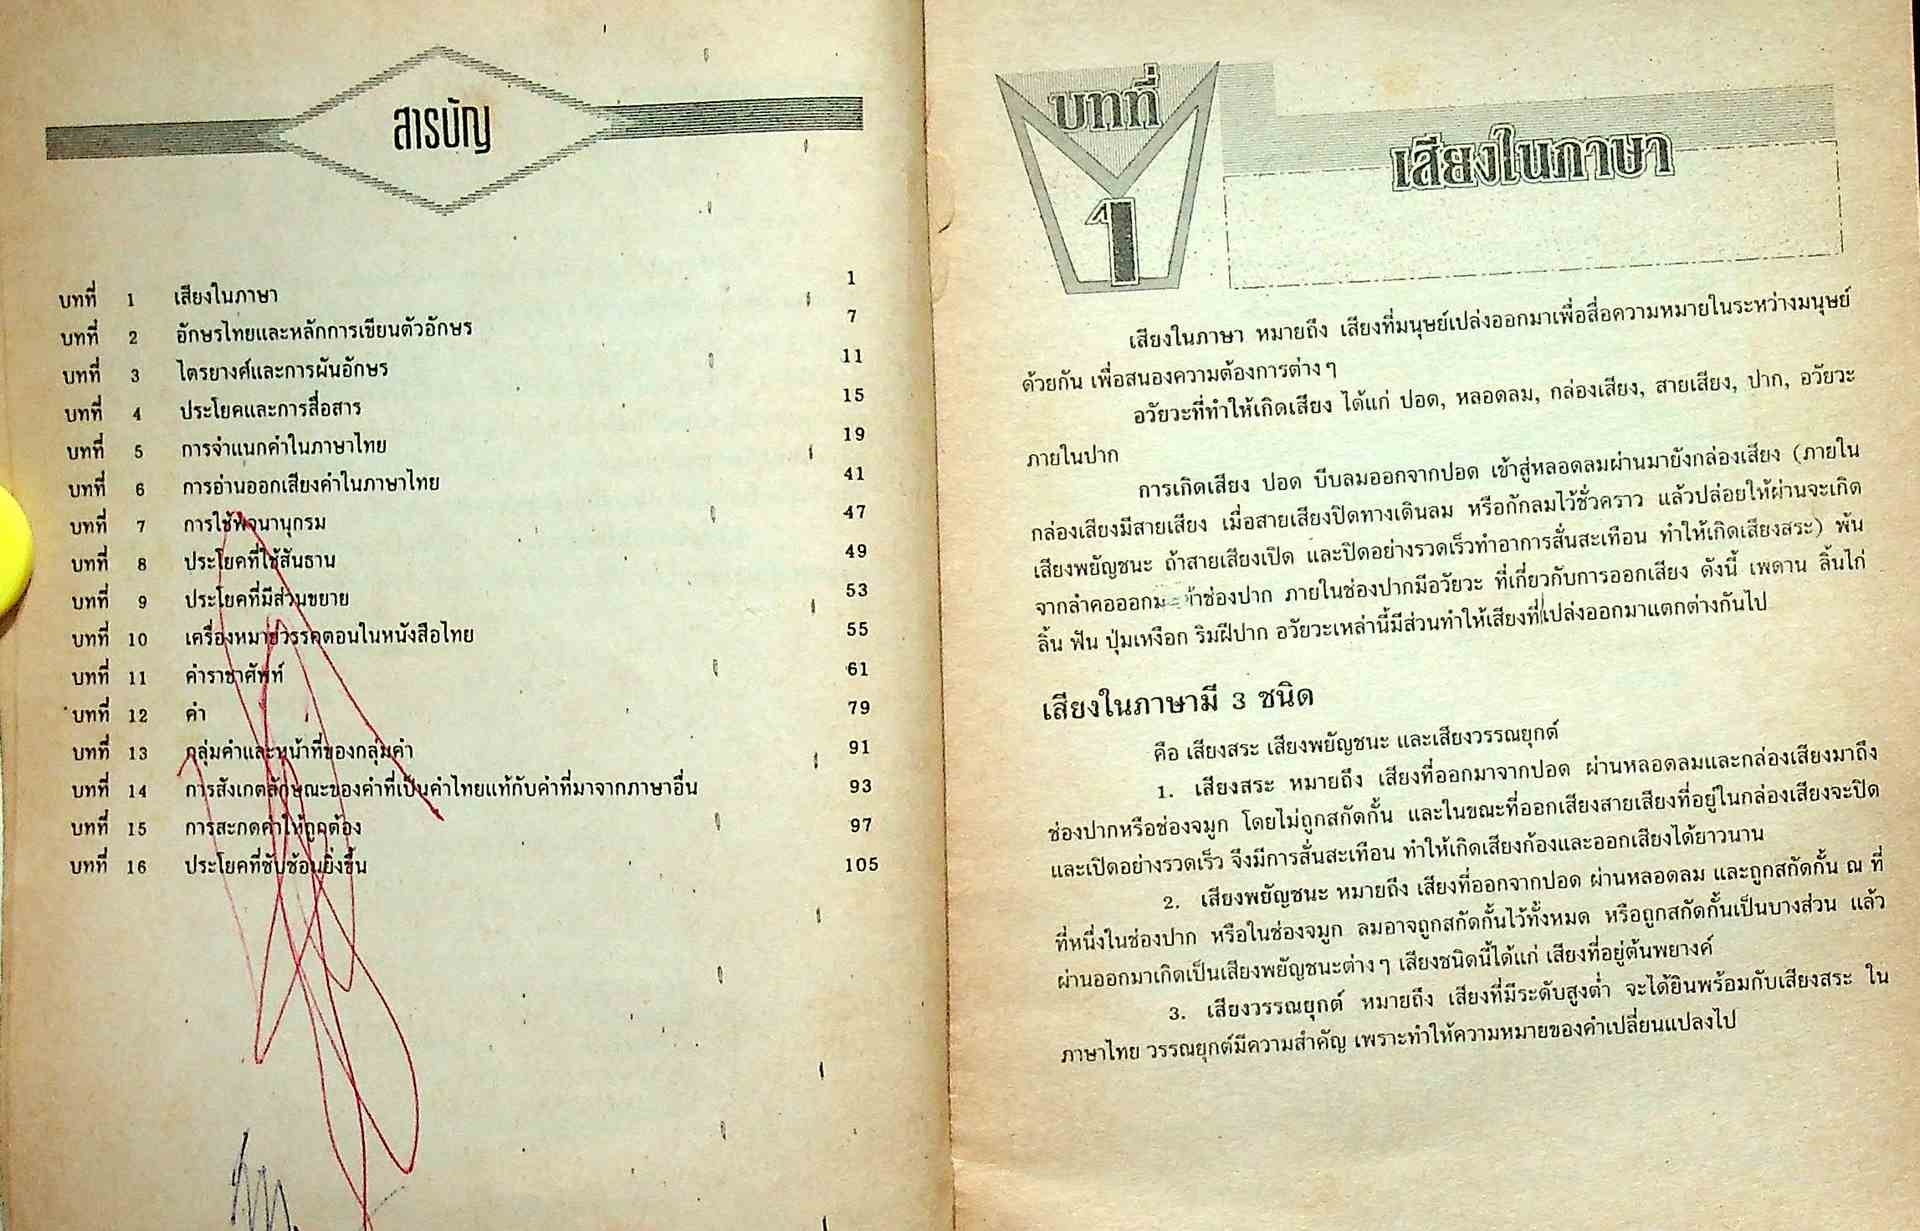 สารบัญ
บทที่ 1 เสียงในภาษา 1
บทที่ 2 อักษรไทยและหลักการเขียนตัวอักษร 7
บทที่ 3 ไตรยางศ์และการผันอักษร 11
บทที่ 4 ประโยคและการสื่อสาร 15
บทที่ 5 การจำแนกคำในภาษาไทย 19
บทที่ 6 การอ่านออกเสียงคำในภาษาไทย 41
บทที่ 7 การใช้พจนานุกรม 47
บทที่ 8 ประโยคที่ใช้สันธาน 49
บทที่ 9 ประโยคที่มีส่วนขยาย 53
บทที่ 10 เครื่องหมายวรรคตอนในหนังสือไทย 55
บทที่ 11 คำราชาศัพท์ 61
บทที่ 12 คำ 79
บทที่ 13 กลุ่มคำและหน้าที่ของกลุ่มคำ 91
บทที่ 14 การสังเกตลักษณะของคำที่เป็นคำไทยแท้กับคำที่มาจากภาษาอื่น 93
บทที่ 15 การสะกดคำให้ถูกต้อง 97
บทที่ 16 ประโยคที่ซับซ้อนยิ่งขึ้น 105
บทที่ 1
เสียงในภาษา
เสียงในภาษา หมายถึง เสียงที่มนุษย์เปล่งออกมาเพื่อสื่อความหมายในระหว่างมนุษย์
ด้วยกัน เพื่อสนองความต้องการต่างๆ
อวัยวะที่ทำให้เกิดเสียง ได้แก่ ปอด, หลอดลม, กล่องเสียง, สายเสียง, ปาก, อวัยวะ
ภายในปาก
การเกิดเสียง ปอด บีบลมออกจากปอด เข้าสู่หลอดลมผ่านมายังกล่องเสียง (ภายใน
กล่องเสียงมีสายเสียง เมื่อสายเสียงปิดทางเดินลม หรือกักลมไว้ชั่วคราว แล้วปล่อยให้ผ่านจะเกิด
เสียงพยัญชนะ ถ้าสายเสียงเปิด และปิดอย่างรวดเร็วทำอาการสั่นสะเทือน ทำให้เกิดเสียงสระ) พ้น
จากลำคอออกม ช่องปาก ภายในช่องปากมีอวัยวะ ที่เกี่ยวกับการออกเสียง ดังนี้ เพดาน ลิ้นไก่
ลิ้น ฟัน ปุ่มเหงือก ริมฝีปาก อวัยวะเหล่านี้มีส่วนทำให้เสียงที่เปล่งออกมาแตกต่างกันไป
เสียงในภาษามี 3 ชนิด
คือ เสียงสระ เสียงพยัญชนะ และเสียงวรรณยุกต์
1. เสียงสระ หมายถึง เสียงที่ออกมาจากปอด ผ่านหลอดลมและกล่องเสียงมาถึง
ช่องปากหรือช่องจมูก โดยไม่ถูกสกัดกั้น และในขณะที่ออกเสียงสายเสียงที่อยู่ในกล่องเสียงจะปิด
และเปิดอย่างรวดเร็ว จึงมีการสั่นสะเทือน ทำให้เกิดเสียงก้องและออกเสียงได้ยาวนาน
2. เสียงพยัญชนะ หมายถึง เสียงที่ออกจากปอด ผ่านหลอดลม และถูกสกัดกั้น ณ ที่
ที่หนึ่งในช่องปาก หรือในช่องจมูก ลมอาจถูกสกัดกั้นไว้ทั้งหมด หรือถูกสกัดกั้นเป็นบางส่วน แล้ว
ผ่านออกมาเกิดเป็นเสียงพยัญชนะต่างๆ เสียงชนิดนี้ได้แก่ เสียงที่อยู่ต้นพยางค์
3. เสียงวรรณยุกต์ หมายถึง เสียงที่มีระดับสูงต่ำ จะได้ยินพร้อมกับเสียงสระ ใน
ภาษาไทย วรรณยุกต์มีความสำคัญ เพราะทำให้ความหมายของคำเปลี่ยนแปลงไป